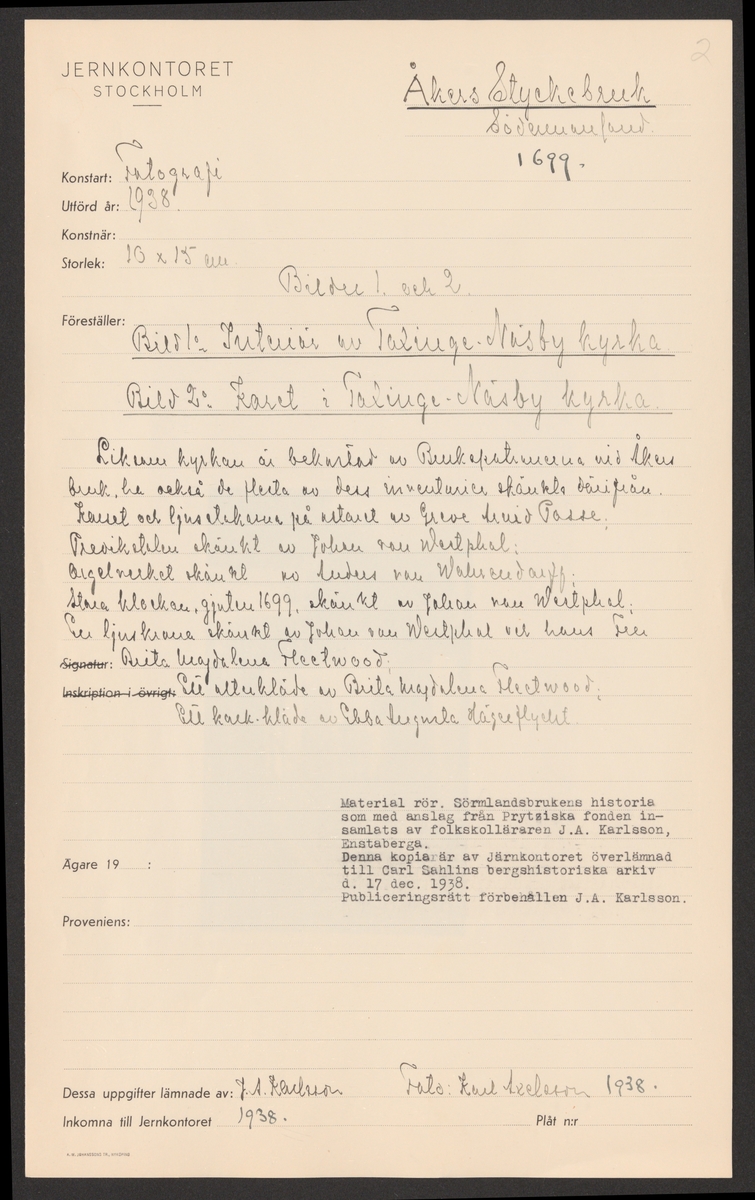 2
JERNKONTORET
STOCKHOLM
Åkers Styckebruk
Södermanland.
1699.
Konstart: Fotografi
Utförd år: 1938.
Konstnär:
Storlek: 10 x 15 cm.
Bilder 1. och 2.
Föreställer:
Bild 1: Interiör av Taxinge-Näsby kyrka.
Bild 2: Koret i Taxinge-Näsby kyrka.
Liksom kyrkan är bekostad av Brukspatronerna vid Åkers
bruk, ha också de flesta av dess inventarier skänkts därifrån.
Korset och ljusstakarna på altaret av Greve Arvid Posse;
Predikstolen skänkt av Johan von Westphal;
Orgelverket skänkt av Anders von Wahrendorff;
Stora klockan, gjuten 1699, skänkt av Johan von Westphal;
En ljuskrona skänkt av Johan von Westphal och hans Fru
Signatur: Brita Magdalena Fleetwood;
Inskription i övrigt: Ett altarkläde av Brita Magdalena Fleetwood;
Ett kalk-kläde av Ebba Augusta Hägerflycht.
Material rör. Sörmlandsbrukens historia
som med anslag från Prytziska fonden in-
samlats av folkskolläraren J.A. Karlsson,
Enstaberga.
Denna kopia är av Järnkontoret överlämnad
till Carl Sahlins bergshistoriska arkiv
d. 17 dec. 1938.
Publiceringsrätt förbehållen J.A. Karlsson.
Ägare 19 :
Proveniens:
Dessa uppgifter lämnade av: J.A. Karlsson Foto: Karl Axelsson 1938.
Inkomna till Jernkontoret 1938. Plåt n:r